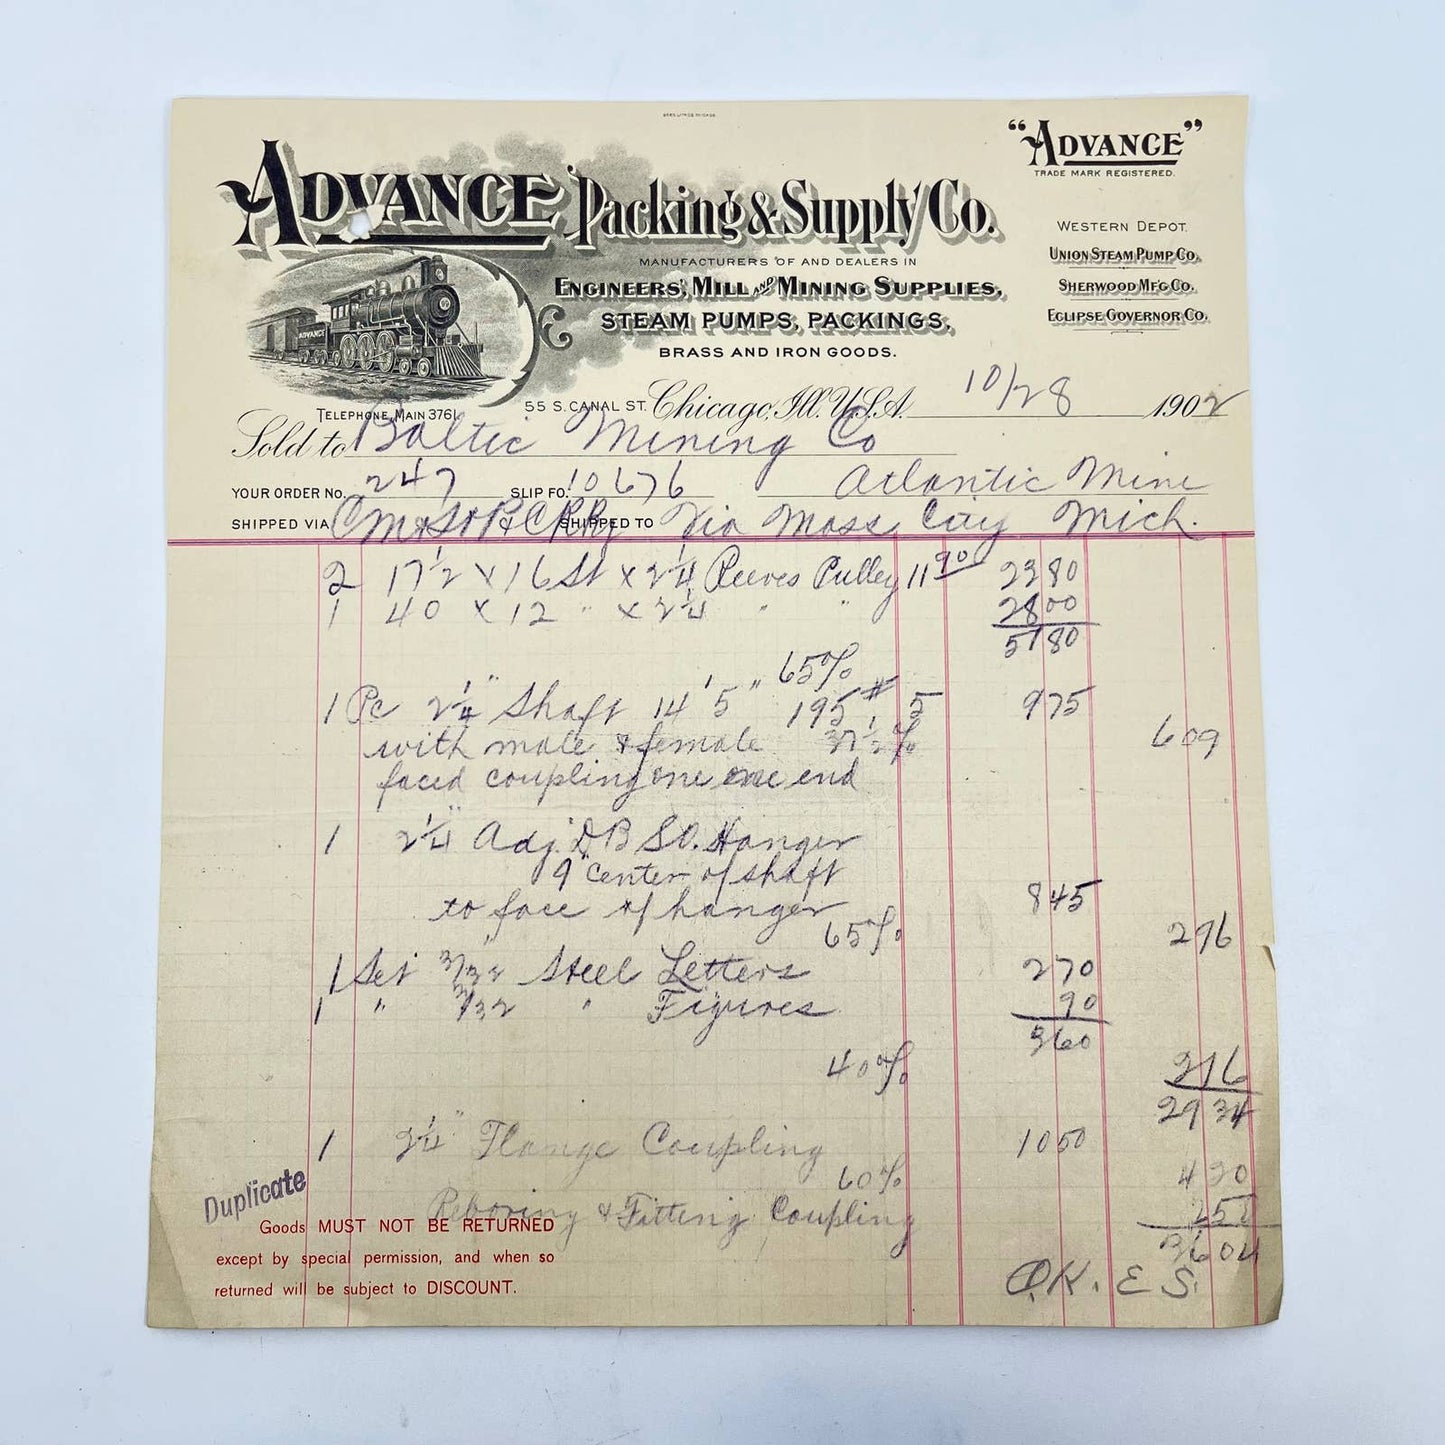 "ADVANCE"
TRADE MARK REGISTERED.
ADVANCE Packing & Supply Co.
WESTERN DEPOT.
UNION STEAM PUMP CO.
SHERWOOD M'F'G CO.
ECLIPSE GOVERNOR CO.
MANUFACTURERS OF AND DEALERS IN
ENGINEERS', MILL AND MINING SUPPLIES,
STEAM PUMPS, PACKINGS,
BRASS AND IRON GOODS.
ADVANCE
TELEPHONE, MAIN 3761. 55 S. CANAL ST. Chicago, Ill. U.S.A. 10/28 1902
Sold to Baltic Mining Co
YOUR ORDER NO. 247 SLIP FO. 10676 Atlantic Mine
SHIPPED VIA SHIPPED TO Via Mass City Mich.
2 17 1/2 x 16 St x 2 1/4 Reeves Pulley 11 90 23 80
1 40 x 12 " x 2 1/4 " " 28 00
51 80
65%
1 Pc 2 1/4" Shaft 14' 5" 195# 5 9 75
with male & female 37 1/2 % 6 09
faced coupling one one end
1 2 1/4" Adj. D B S O. Hanger
9" center of shaft
to face of hanger 8 45
65% 2 96
1 Set 3/32" Steel Letters 2 70
1 " 3/32 " Figures 90
3 60
40% 2 16
29 34
1 2 1/4" Flange Coupling 10 50
60% 4 20
Reboring & Fitting Coupling 2 50
36 04
Duplicate
Goods MUST NOT BE RETURNED
except by special permission, and when so
returned will be subject to DISCOUNT.
O.K. E S.